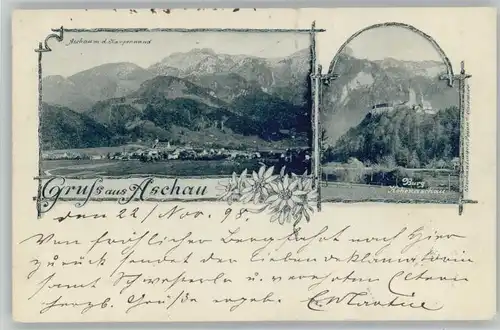 Aschau m. d. Kampenwand
Burg
Hohenaschau
Gruß aus Aschau
den 22/Nov. 98.
Von fröhlicher Bergfahrt nach Hier
zurück sendet der lieben deklamatorin
samt Schwesterle u verehrten Eltern
herzl. Grüße ergeb.